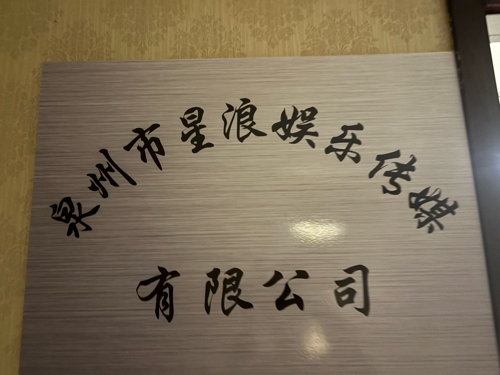 泉州市星浪娱乐传媒
有限公司